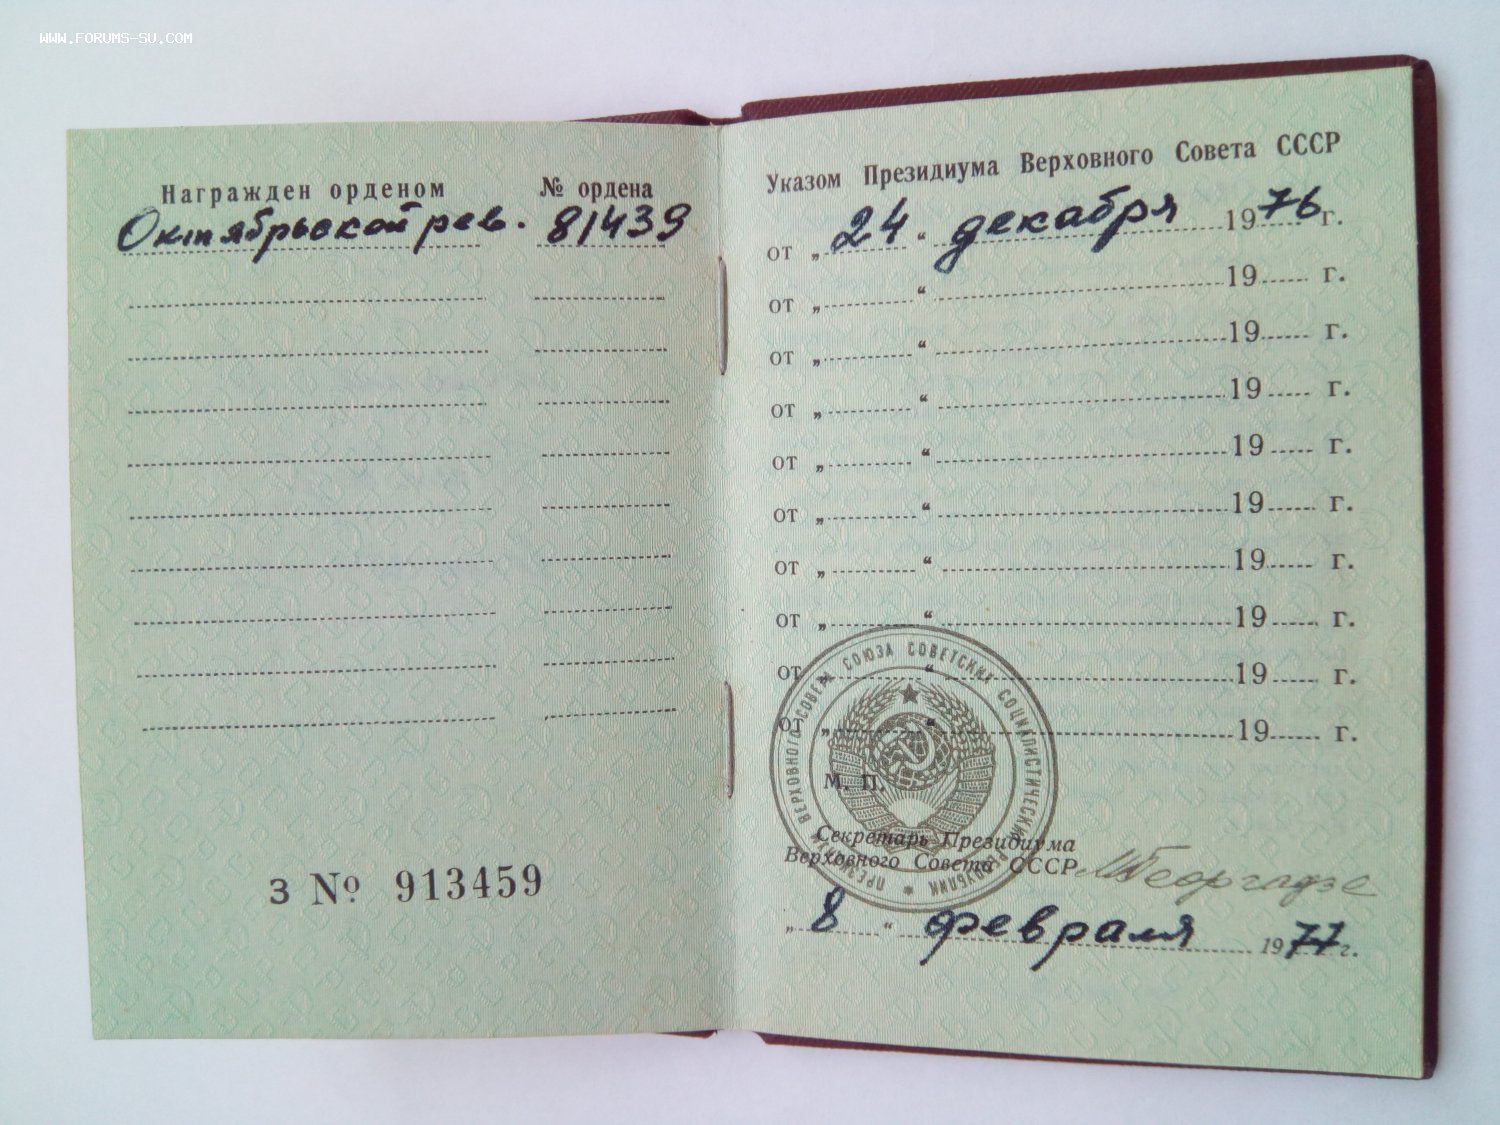 WWW.FORUMS-SU.COM
Награжден орденом № ордена
Октябрьской рев. 81439
З № 913459
Указом Президиума Верховного Совета СССР
от „24“ декабря 1976 г.
от „ “ 19 г.
от „ “ 19 г.
от „ “ 19 г.
от „ “ 19 г.
от „ “ 19 г.
от „ “ 19 г.
от „ “ 19 г.
от „ “ 19 г.
от „ “ 19 г.
ПРЕЗИДИУМ ВЕРХОВНОГО СОВЕТА СОЮЗА СОВЕТСКИХ СОЦИАЛИСТИЧЕСКИХ РЕСПУБЛИК
М. П.
Секретарь Президиума
Верховного Совета СССР МГеоргадзе
„8“ февраля 1977 г.